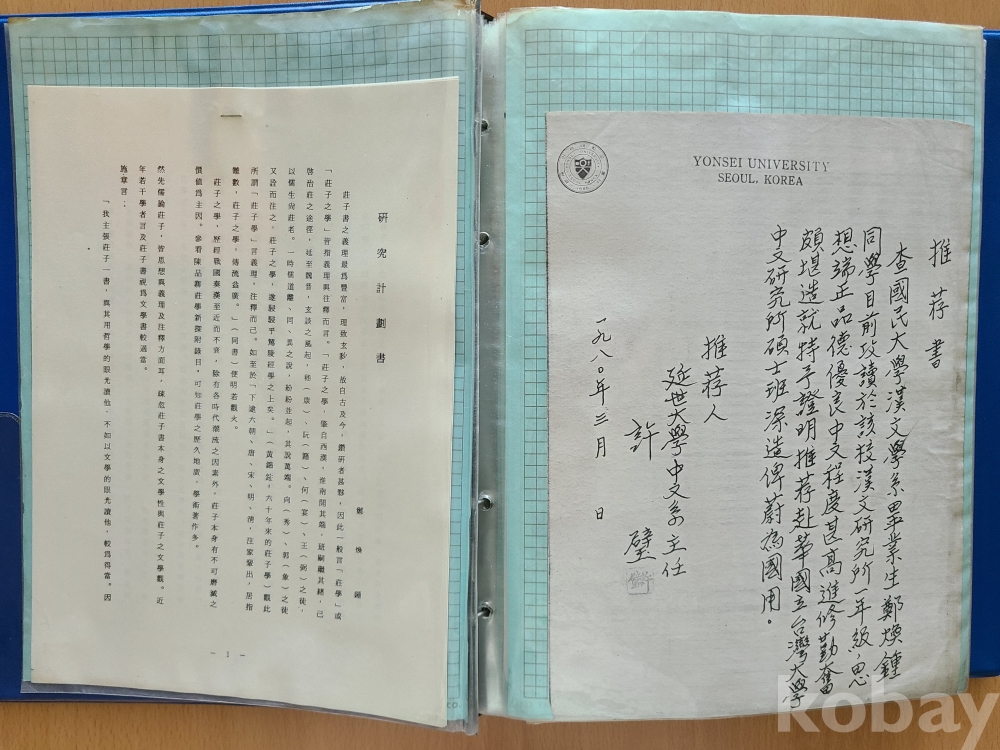 研究計劃書
鄭煥鍾
莊子書之義理最為豐富，理致玄眇，故自古及今，鑽研者甚夥，因此一般言「莊學」或
「莊子之學」皆指義理與注釋而言。「莊子之學，肇自西漢，淮南開其端，班嗣繼其緒，已
啓治莊之途徑，延至魏晉，玄談之風起，嵇（康）、阮（籍）、何（宴）、王（弼）之徒，
以儒生尚莊老。一時儒道離、同、異之說，紛紛並起，其說萬端。向（秀）、郭（象）之徒
又詮而注之，莊子之學，遂駸駸乎駕陵經學之上矣。」（黃錦鋐，六十年來的莊子學）觀此
所謂「莊子學」言義理，注釋而已。如至於「下逮六朝、唐、宋、明、清，注家輩出，居指
難數，莊子之學，傳流益廣。」（同書）便明若觀火。
莊子之學，歷經戰國秦漢至近而不衰，除有各時代潮流之因素外，莊子本身有不可磨滅之
價值為主因。參看陳品卿莊學新探附錄目，可知莊學之歷久地廣，學術著作多。
然先儒論莊子，皆思想與義理及注釋方面耳，疎忽莊子書本身之文學性與莊子之文學觀。近
年若干學者言及莊子書視為文學書較適當。
施章言：
「我主張莊子一書，與其用哲學的眼光讀他，不如以文學的眼光讀他，較為得當。因
— 1 —
YONSEI UNIVERSITY
SEOUL, KOREA
推荐書
查國民大學漢文學系畢業生鄭煥鍾
同學目前攻讀於該校漢文研究所一年級，思
想端正品德優良中文程度甚高進修勤奮
頗堪造就特予證明推荐赴華國立台灣大學
中文研究所碩士班深造俾蔚為國用。
推荐人
延世大學中文系主任
許璧
一九八〇年三月　日
kobay